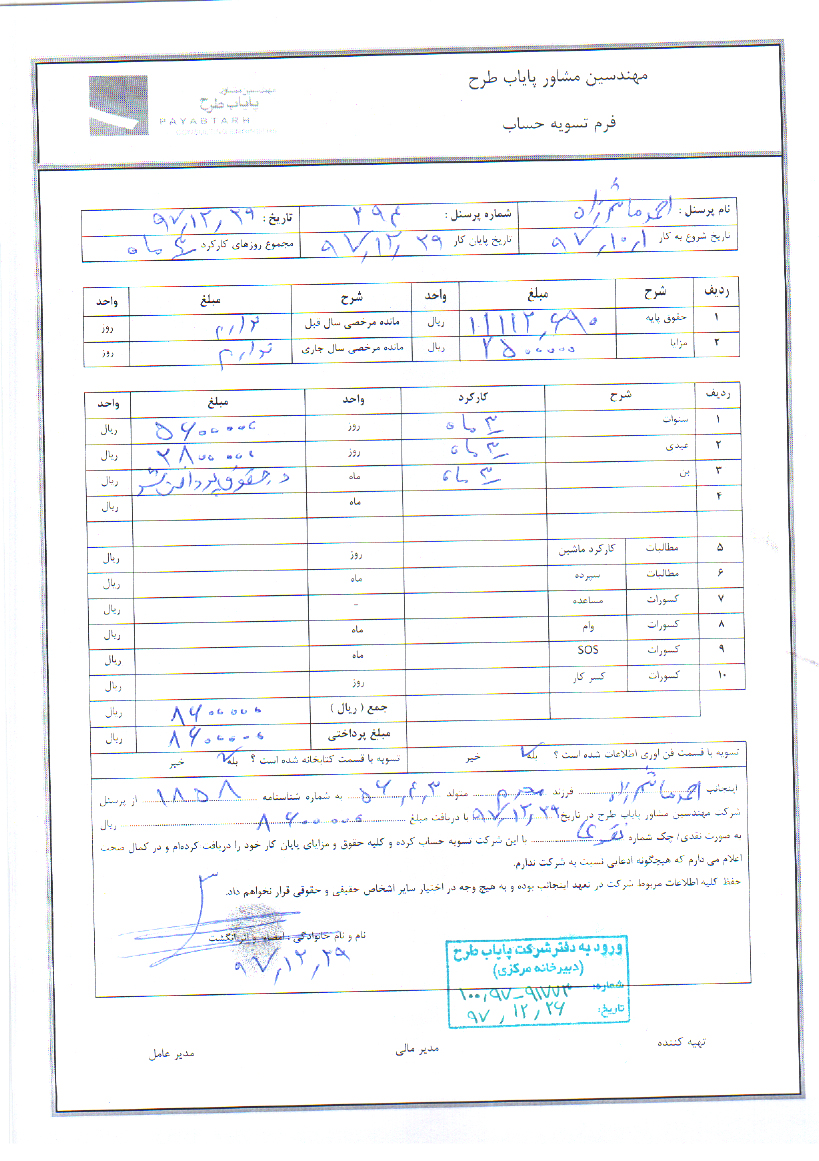 مهندسین مشاور پایاب طرح
فرم تسویه حساب
مهندسین مشاور
پایاب طرح
PAYABTARH
نام پرسنل : احمد شماره پرسنل : ۲۹۴ تاریخ : ۹۷,۱۲,۲۹
تاریخ شروع به کار ۹۷,۱۰,۱ تاریخ پایان کار ۹۷,۱۲,۲۹ مجموع روزهای کارکرد ۳ ماه
ردیف شرح مبلغ واحد شرح مبلغ واحد
۱ حقوق پایه ۱۱۱۱۲,۶۹۰ ریال مانده مرخصی سال قبل ندارم روز
۲ مزایا ۲۵۰۰۰۰۰ ریال مانده مرخصی سال جاری ندارم روز
ردیف شرح کارکرد واحد مبلغ واحد
۱ سنوات ۳ ماه روز ۵۶۰۰۰۰۰ ریال
۲ عیدی ۳ ماه روز ۲۸۰۰۰۰۰ ریال
۳ بن ۳ ماه ماه در حقوق پرداخت شد ریال
۴ ماه ریال
۵ مطالبات کارکرد ماشین روز ریال
۶ مطالبات سپرده ماه ریال
۷ کسورات مساعده - ریال
۸ کسورات وام ماه ریال
۹ کسورات SOS ماه ریال
۱۰ کسورات کسر کار روز ریال
جمع ( ریال ) ۸۴۰۰۰۰۰ ریال
مبلغ پرداختی ۸۴۰۰۰۰۰ ریال
تسویه با قسمت فن آوری اطلاعات شده است ؟ بله خیر تسویه با قسمت کتابخانه شده است ؟ بله خیر
اینجانب احمد فرزند محرم متولد ۵۶,۴,۳ به شماره شناسنامه ۱۸۵۸ از پرسنل
شرکت مهندسین مشاور پایاب طرح در تاریخ ۹۷,۱۲,۲۹ با دریافت مبلغ ۸۴۰۰۰۰۰ ریال
به صورت نقدی/ چک شماره نقدی با این شرکت تسویه حساب کرده و کلیه حقوق و مزایای پایان کار خود را دریافت کرده‌ام و در کمال صحت
اعلام می دارم که هیچگونه ادعائی نسبت به شرکت ندارم.
حفظ کلیه اطلاعات مربوط شرکت در تعهد اینجانب بوده و به هیچ وجه در اختیار سایر اشخاص حقیقی و حقوقی قرار نخواهم داد.
نام و نام خانوادگی ، امضاء و اثر انگشت
۹۷,۱۲,۲۹
ورود به دفتر شرکت پایاب طرح
(دبیرخانه مرکزی)
شماره: ۱۰۰,۹۷-۹۱۷۷۳
تاریخ: ۹۷,۱۲,۲۶
تهیه کننده مدیر مالی مدیر عامل